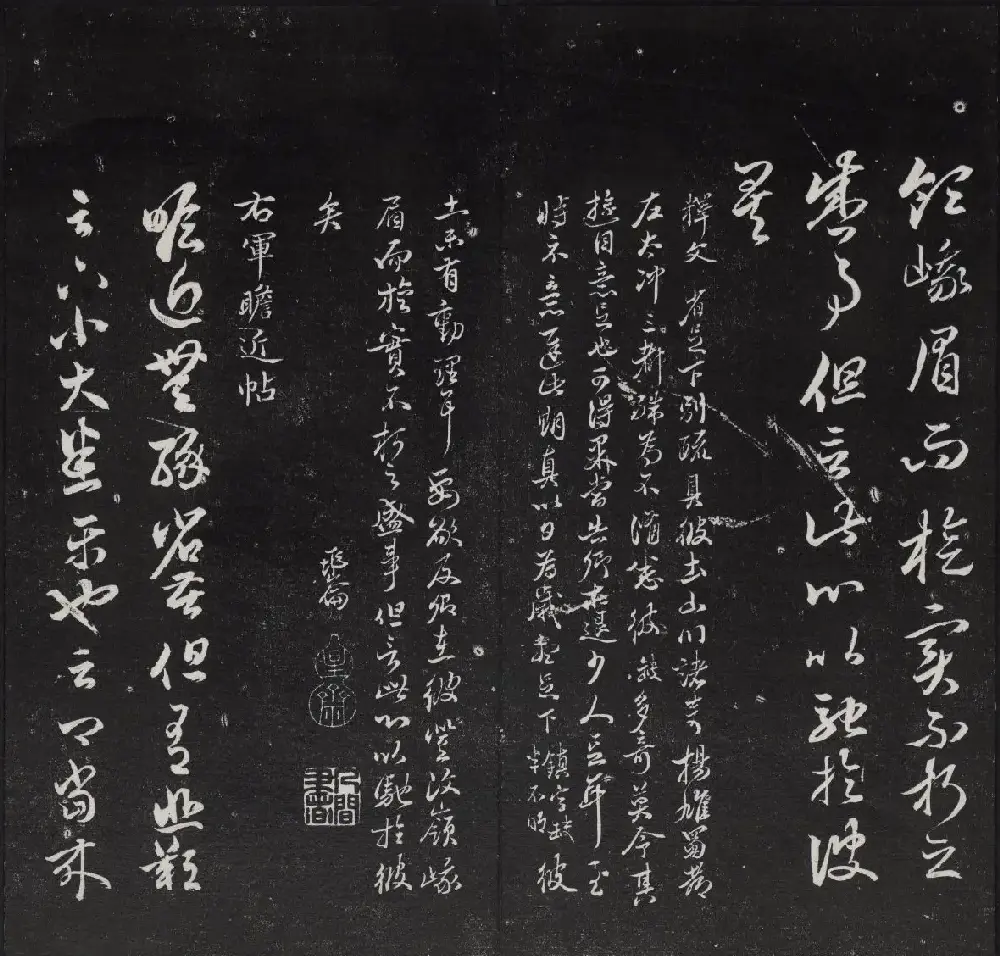 領峨眉而旋實不朽之
盛事但言此心以馳於彼
矣
釋文 省足下別疏具彼土山川諸奇楊雄蜀都
左太冲三都殊為不備悉彼故多奇益令其
遊目意足也可得果當告卿求迎少人足耳至
時示意遲此期真以日為歲想足下鎮字缺半不明彼
土未有動理耳 要欲及卿在彼登汶嶺峨
眉而旋實不朽之盛事但言此心以馳於彼
矣
右軍瞻近帖
瞻近無緣省苦但有悲歎
足下小大悉平也云卿當來